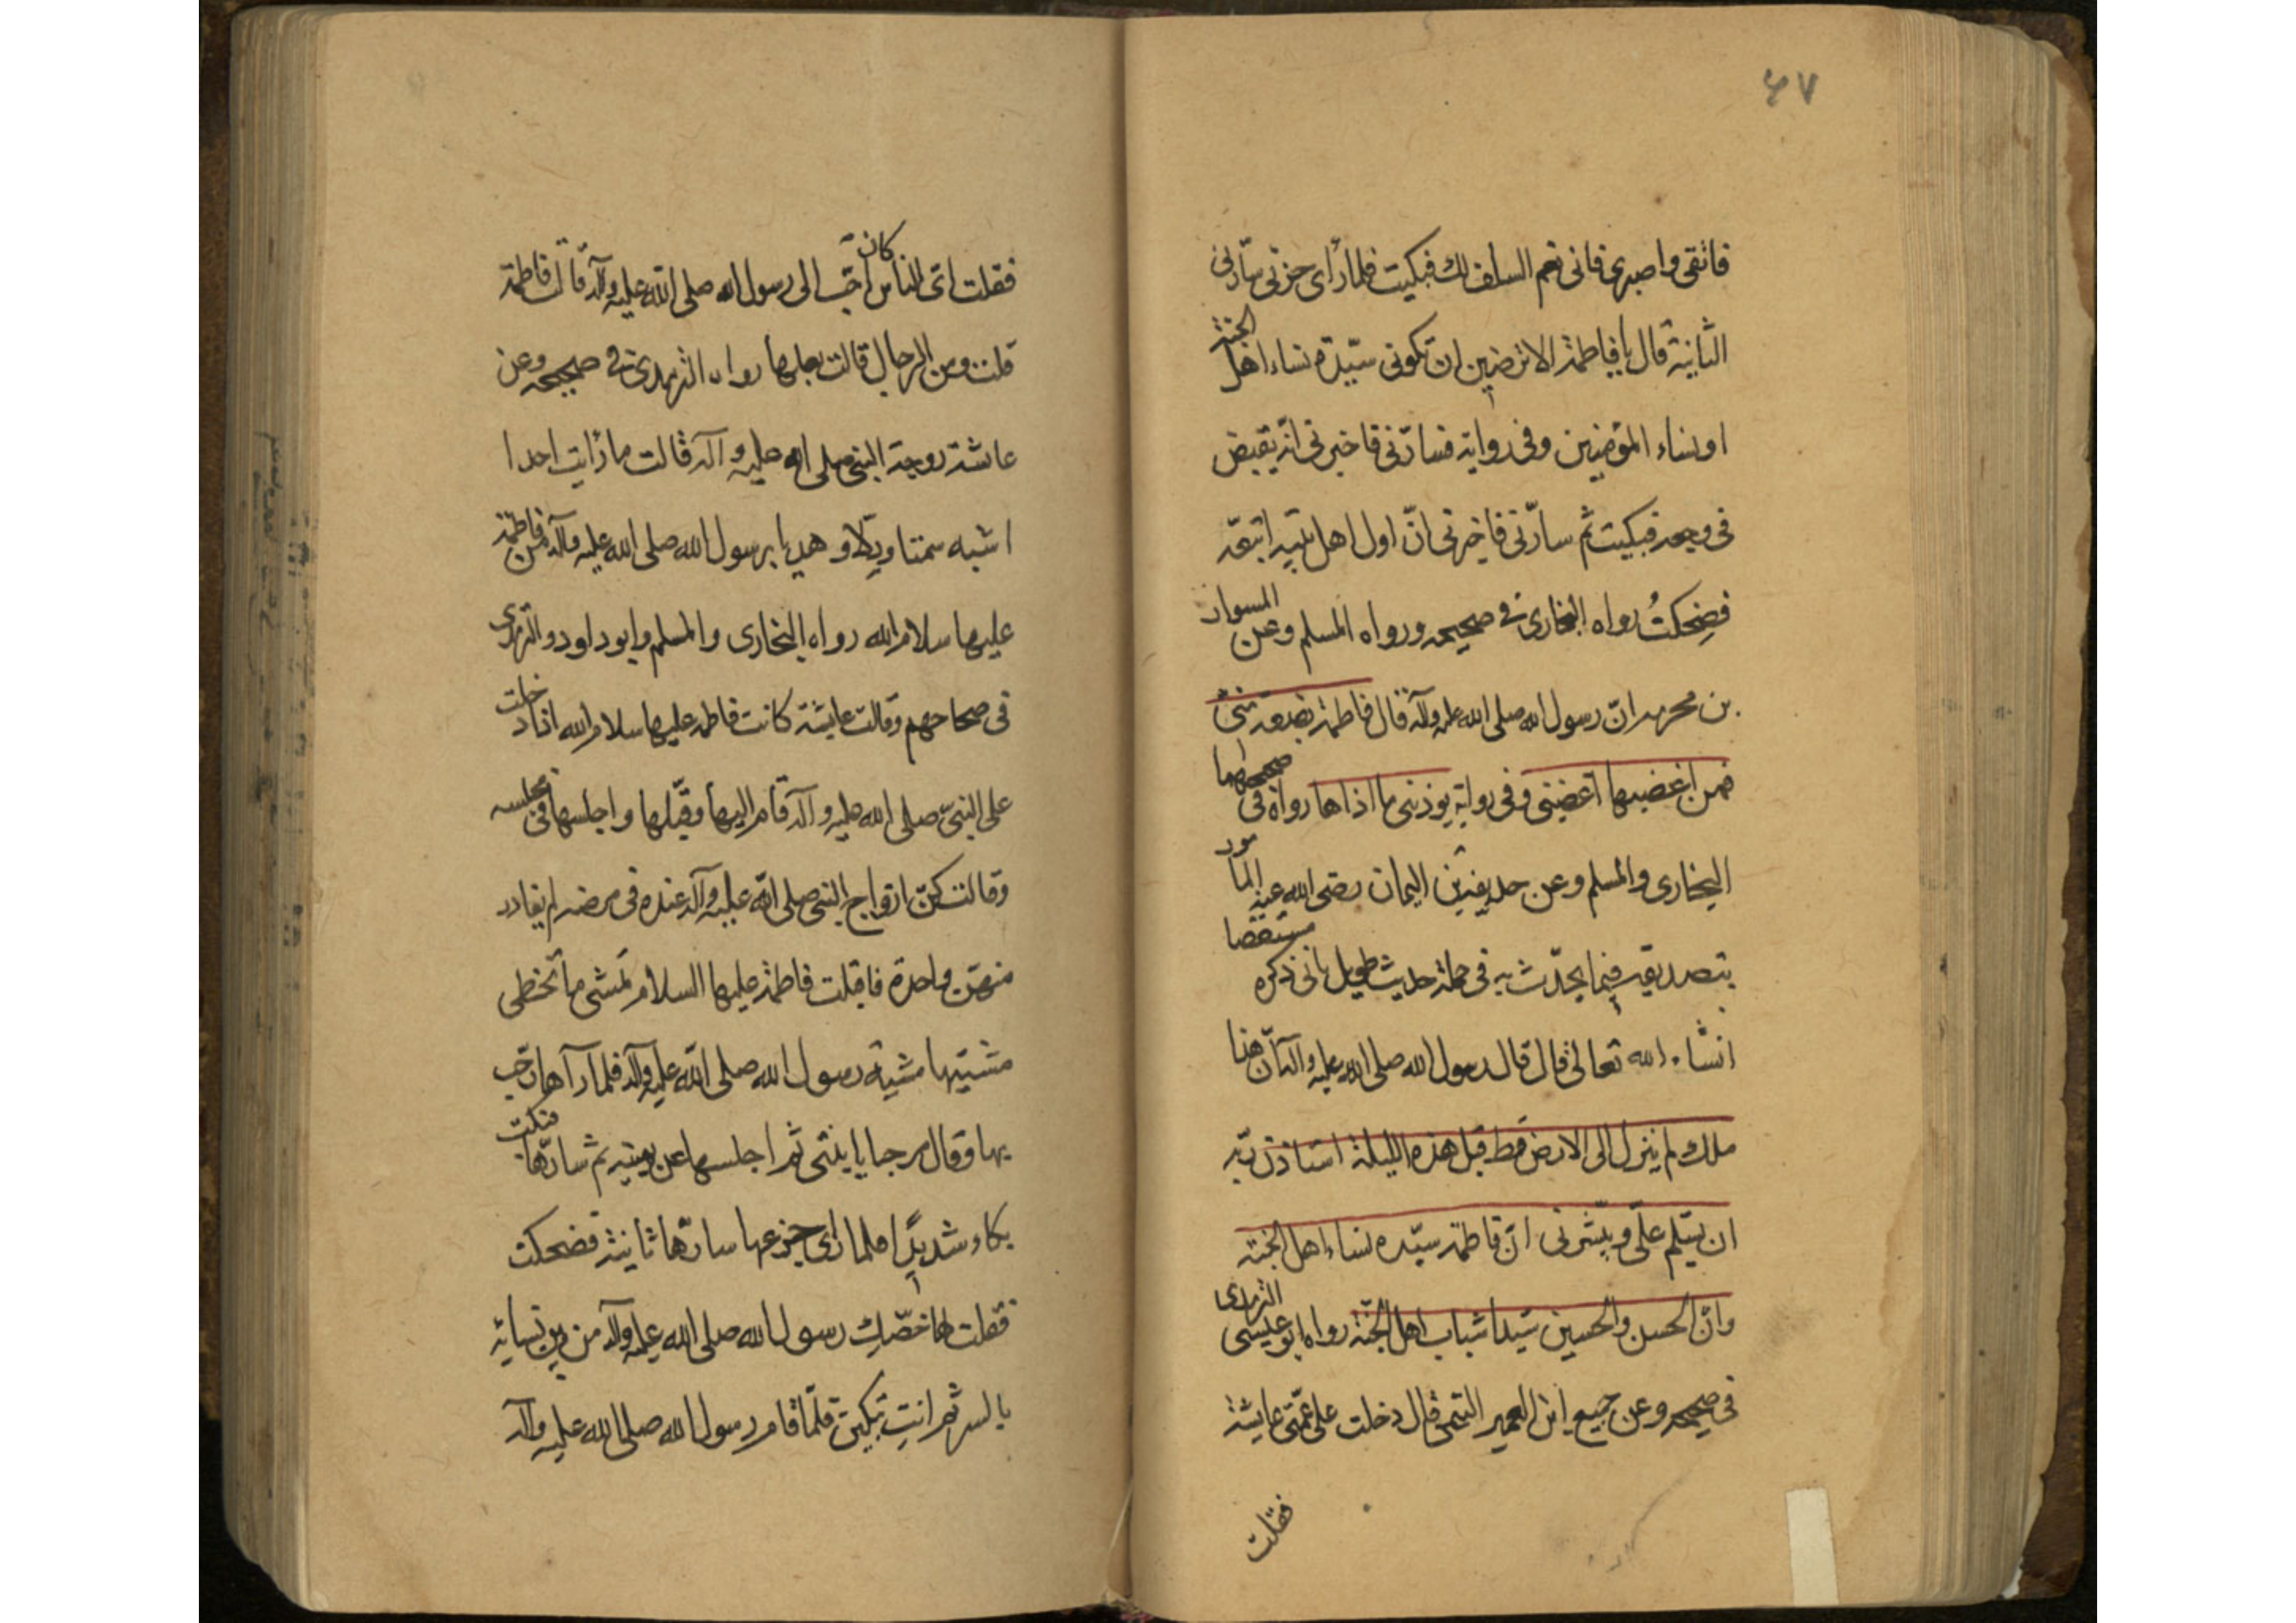 ٤٧
فاتقی واصبری فانی نعم السلف لك فبکیت فلما رأی حزنی سارّنی
الثانیة قال یا فاطمة الا ترضین ان تکونی سیّدة نساء اهل الجنة
او نساء المؤمنین وفی روایة فسارّنی فاخبرنی انّه یقبض
فی وجعه فبکیت ثم سارّنی فاخبرنی انّ اول اهل بیته اتبعه
فضحکتُ رواه البخاری فی صحیحه ورواه المسلم وعن المسوار
بن محرمه انّ رسول الله صلی الله علیه وآله قال فاطمة بضعة منّی
فمن اغضبها اغضبنی وفی روایة یوذینی ما اذاها رواه فی صحیحهما
البخاری والمسلم وعن حذیفة بن الیمان رضی الله عنه المأمور
بتصدیقه فیما یحدّث به فی جملة حدیث طویل یاتی ذکره مستقصا
انشاء الله تعالی قال قال رسول الله صلی الله علیه وآله انّ هذا
ملك لم ینزل الی الارض قط قبل هذه اللیلة استاذن ربّه
ان یسّلم علیّ ویبّشرنی انّ فاطمة سیّده نساء اهل الجنة
وانّ الحسن والحسین سیّدا شباب اهل الجنّة رواه ابو عیسی الترمذی
فی صحیحه وعن جمیع ابن العمیر التیمی قال دخلت علی عمّتی عایشة
فقلت
فقلت ایّ الناس کان احّب الی رسول الله صلی الله علیه وآله قالت فاطمة
قلت ومن الرجال قالت بعلها رواه الترمذی فی صحیحه وعن
عائشة زوجة النبی صلی الله علیه وآله قالت ما رأیت احدا
اشبه سمتا ودلّا وهدیا برسول الله صلی الله علیه وآله من فاطمة
علیها سلام الله رواه البخاری والمسلم وابو داود والترمذی
فی صحاحهم وقالت عایشة کانت فاطمه علیها سلام الله اذا دخلت
علی النبیّ صلی الله علیه وآله قام الیها وقبّلها واجلسها فی مجلسه
وقالت کنّ ازواج النبی صلی الله علیه وآله عنده فی مرضه لم یغادر
منهنّ واحدة فاقبلت فاطمة علیها السلام تمشی ما تخطی
مشیتها مشیة رسول الله صلی الله علیه وآله فلما رآها رحّب
بها وقال مرحبا یا ابنتی ثم اجلسها عن یمینه ثم سارّها فبکت
بکاء شدیدًا فلما رأی جزعها سارّها ثانیة فضحکت
فقلت لها خصّكِ رسول الله صلی الله علیه وآله من بین نسائه
بالسر ثم انتِ تبکین فلمّا قام رسول الله صلی الله علیه وآله